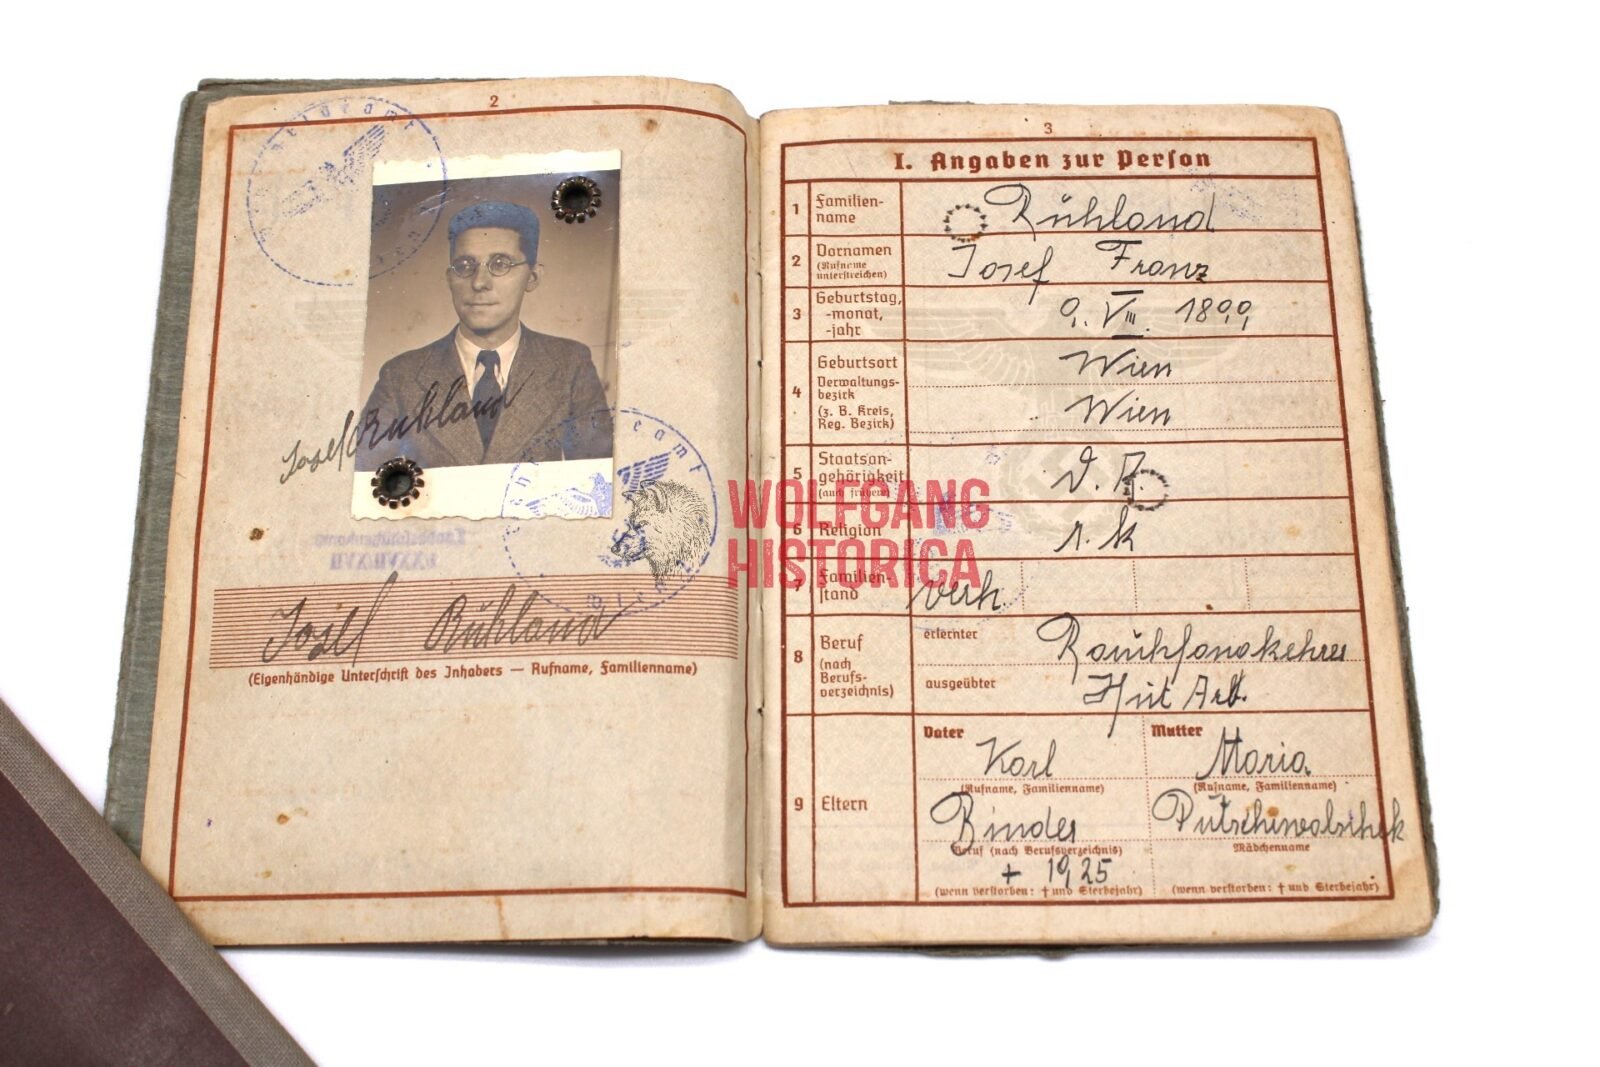 2
Josef Rühland
Josef Rühland
(Eigenhändige Unterschrift des Inhabers — Rufname, Familienname)
WOLFGANG
HISTORICA
3
I. Angaben zur Person
1 Familien-
name
Rühland
2 Vornamen
(Rufname
unterstreichen)
Josef Franz
3 Geburtstag,
-monat,
-jahr
9. VIII. 1899
4 Geburtsort
Verwaltungs-
bezirk
(z. B. Kreis,
Reg. Bezirk)
Wien
Wien
5 Staatsan-
gehörigkeit
(auch frühere)
D. R.
6 Religion
r. k
7 Familien-
stand
verh.
8 Beruf
(nach
Berufs-
verzeichnis)
erlernter
Rauchfangkehrer
ausgeübter
Arb.
9 Eltern
Vater
Karl
(Rufname, Familienname)
Binder
Beruf (nach Berufsverzeichnis)
+ 1925
(wenn verstorben: † und Sterbejahr)
Mutter
Maria
(Rufname, Familienname)
Mädchenname
(wenn verstorben: † und Sterbejahr)